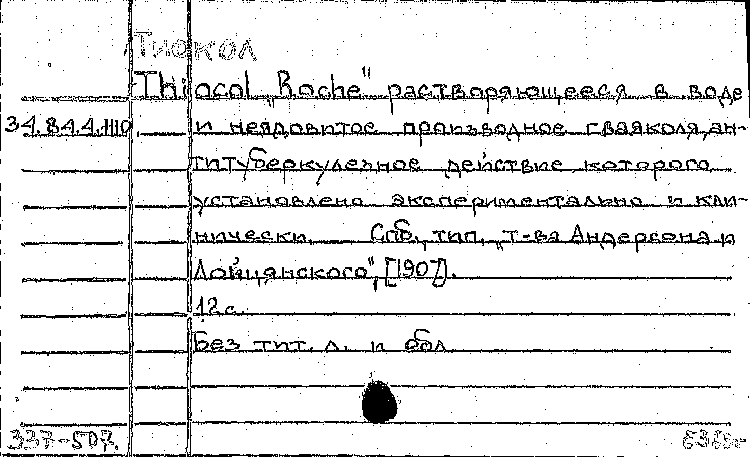 Тиокол
Thiocol „Roche" растворяющееся в воде
34.84.4.1110 и неядовитое производное гваякола, ан-
титуберкулезное действие которого
установлено экспериментально и кли-
нически. Спб., тип. „т-ва Андерсона и
Лойцянского", [1907].
12 с.
Без тит. л. и обл.
337-507.